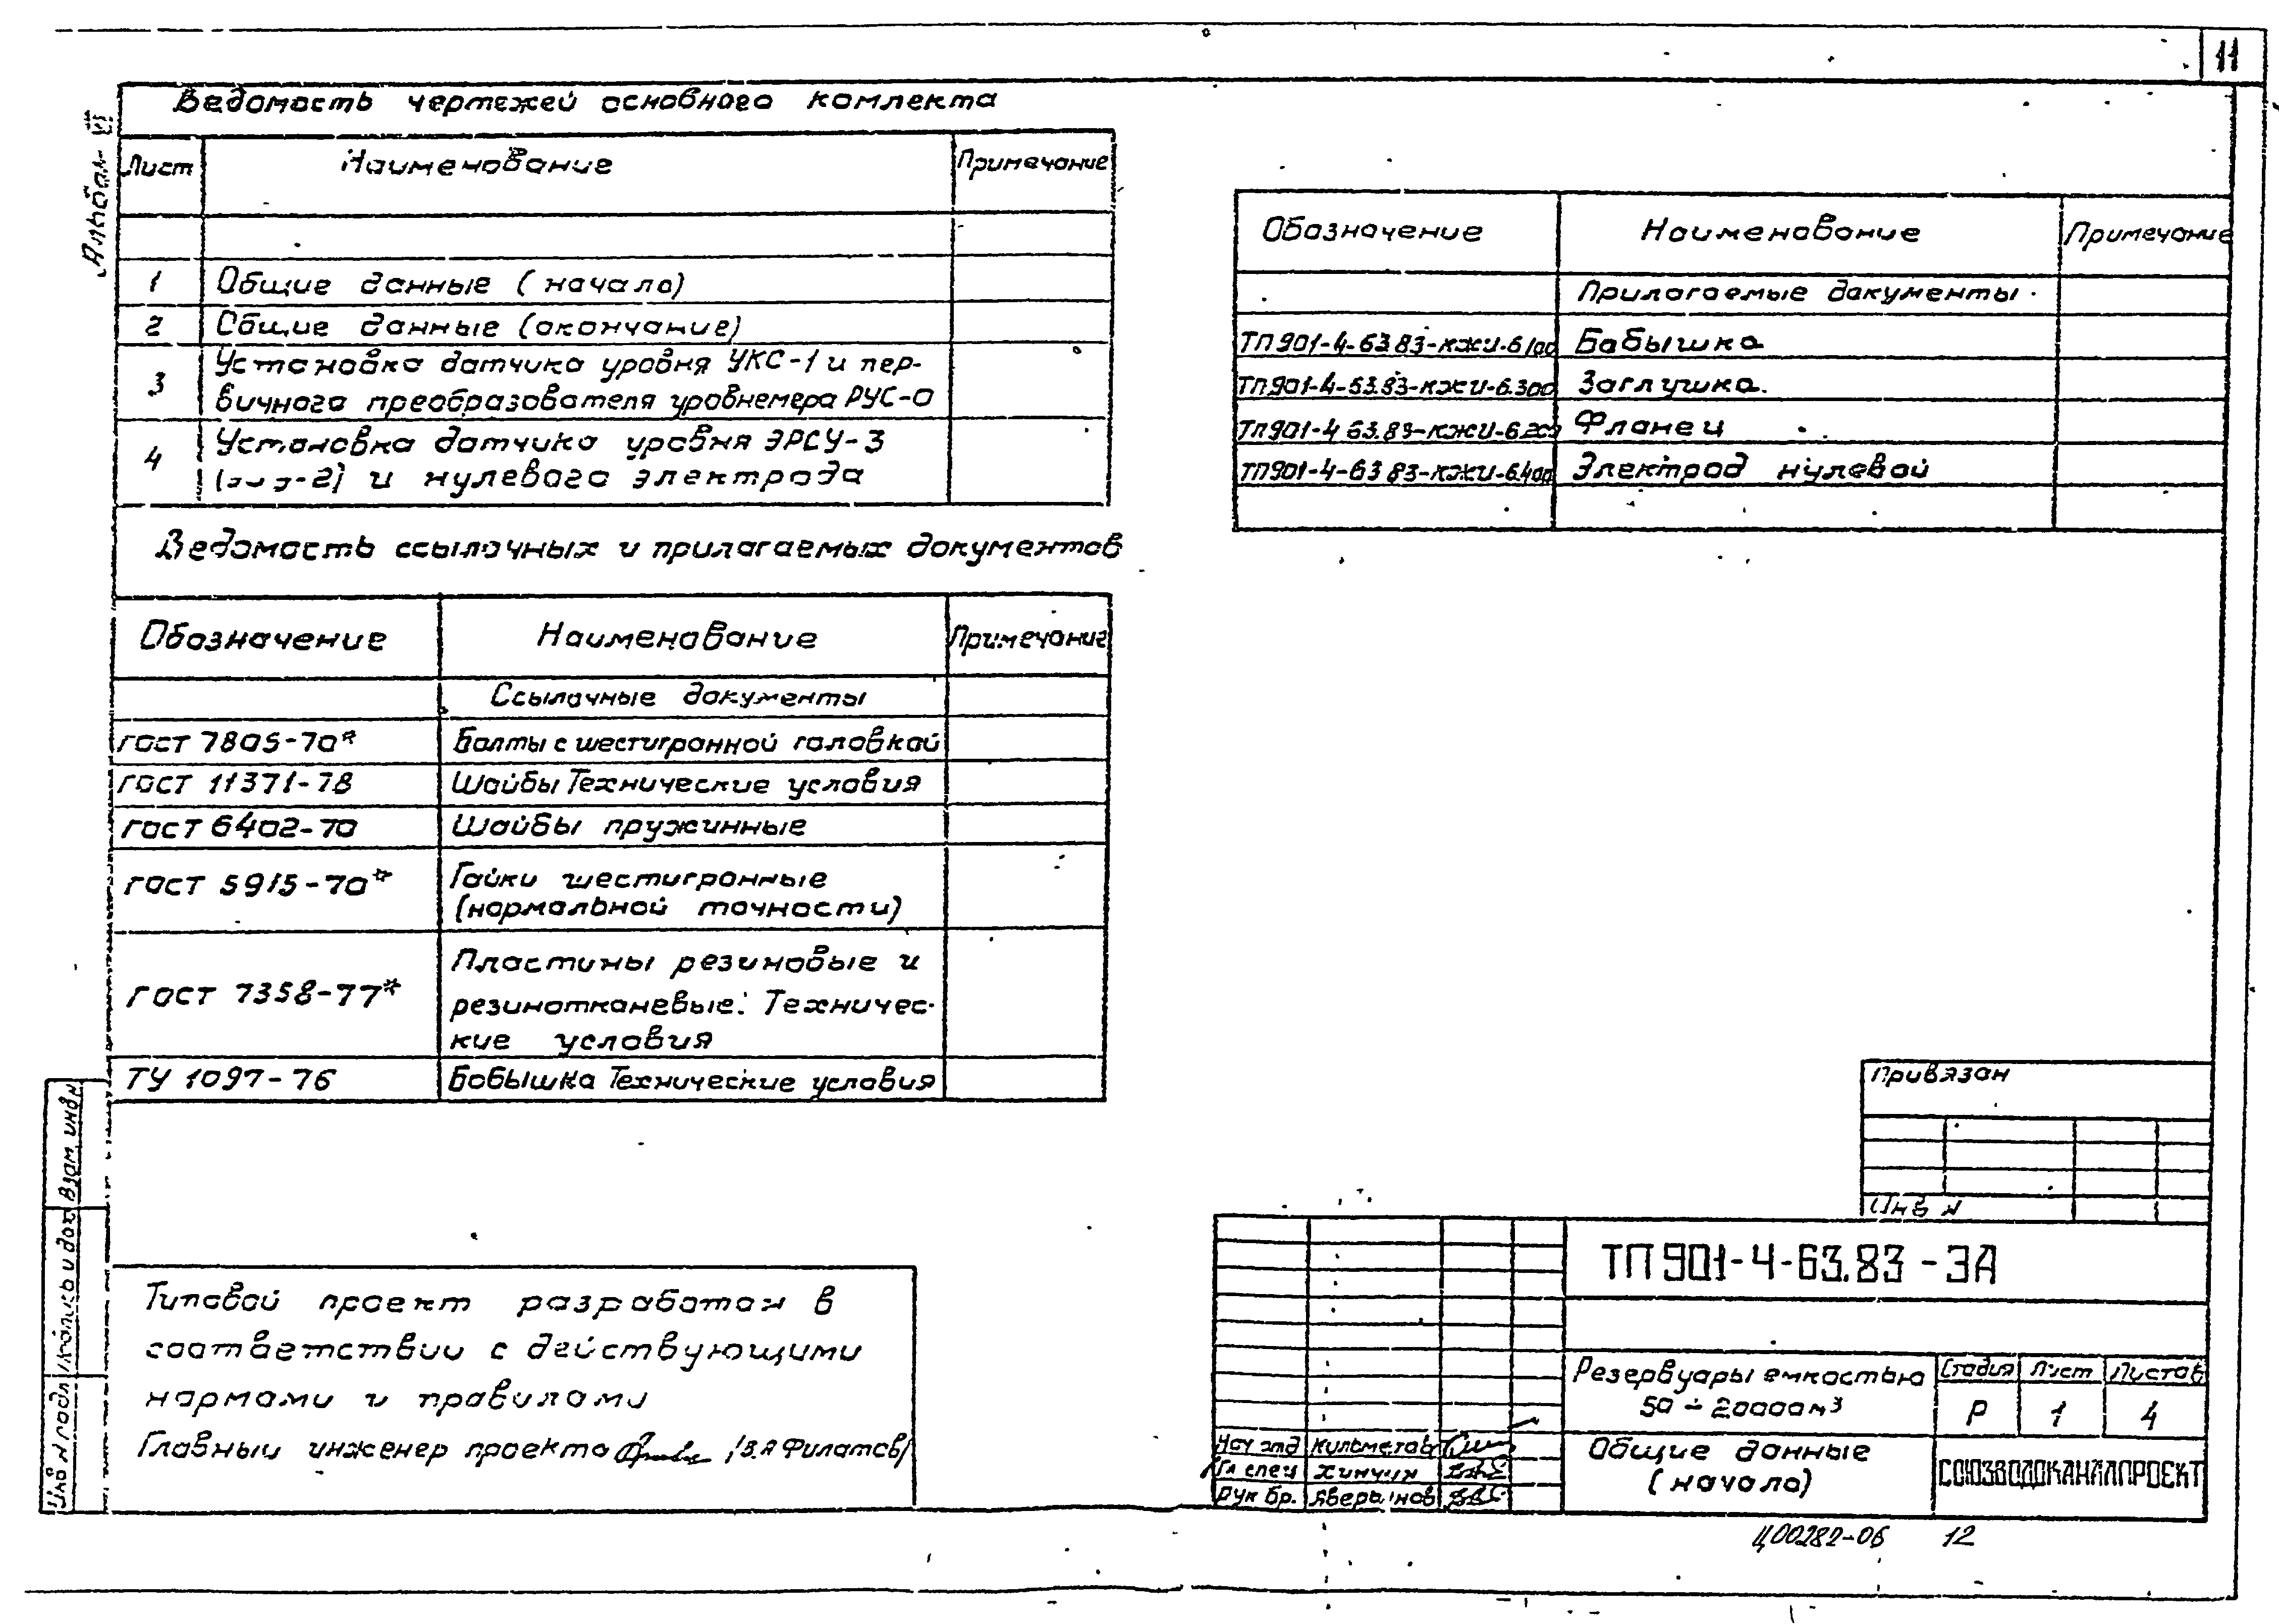 11
Альбом VI
Ведомость чертежей основного комлекта
Лист Наименование Примечание
1 Общие данные (начало)
2 Общие данные (окончание)
3 Установка датчика уровня УКС-1 и пер-
вичного преобразователя уровнемера РУС-0
4 Установка датчика уровня ЭРСУ-3
и нулевого электрода
Ведомость ссылочных и прилагаемых документов
Обозначение Наименование Примечание
Ссылочные документы
ГОСТ 7805-70* Болты с шестигранной головкой
ГОСТ 11371-78 Шайбы Технические условия
ГОСТ 6402-70 Шайбы пружинные
ГОСТ 5915-70* Гайки шестигранные
(нормальной точности)
ГОСТ 7358-77* Пластины резиновые и
резинотканевые. Техничес-
кие условия
ТУ 1097-76 Бобышка Технические условия
Обозначение Наименование Примечание
Прилагаемые документы
ТП901-4-63.83-КЖИ-6.100 Бабышка
ТП901-4-63.83-КЖИ-6.300 Заглушка
ТП901-4-63.83-КЖИ-6.200 Фланец
ТП901-4-63.83-КЖИ-6.400 Электрод нулевой
Типовой проект разработан в
соответствии с действующими
нормами и правилами
Главный инженер проекта /В.Я Филатов/
Взам. инв н
подпись и дата
Инв н подл
Привязан
Инв н
ТП901-4-63.83-ЭА
Резервуары емкостью
50 ÷ 20000м³
Стадия Лист Листов
Р 1 4
Общие данные
(начало)
СОЮЗВОДОКАНАЛПРОЕКТ
Нач отд
Гл спец Хинчин
Рук бр.
Ц00282-06 12